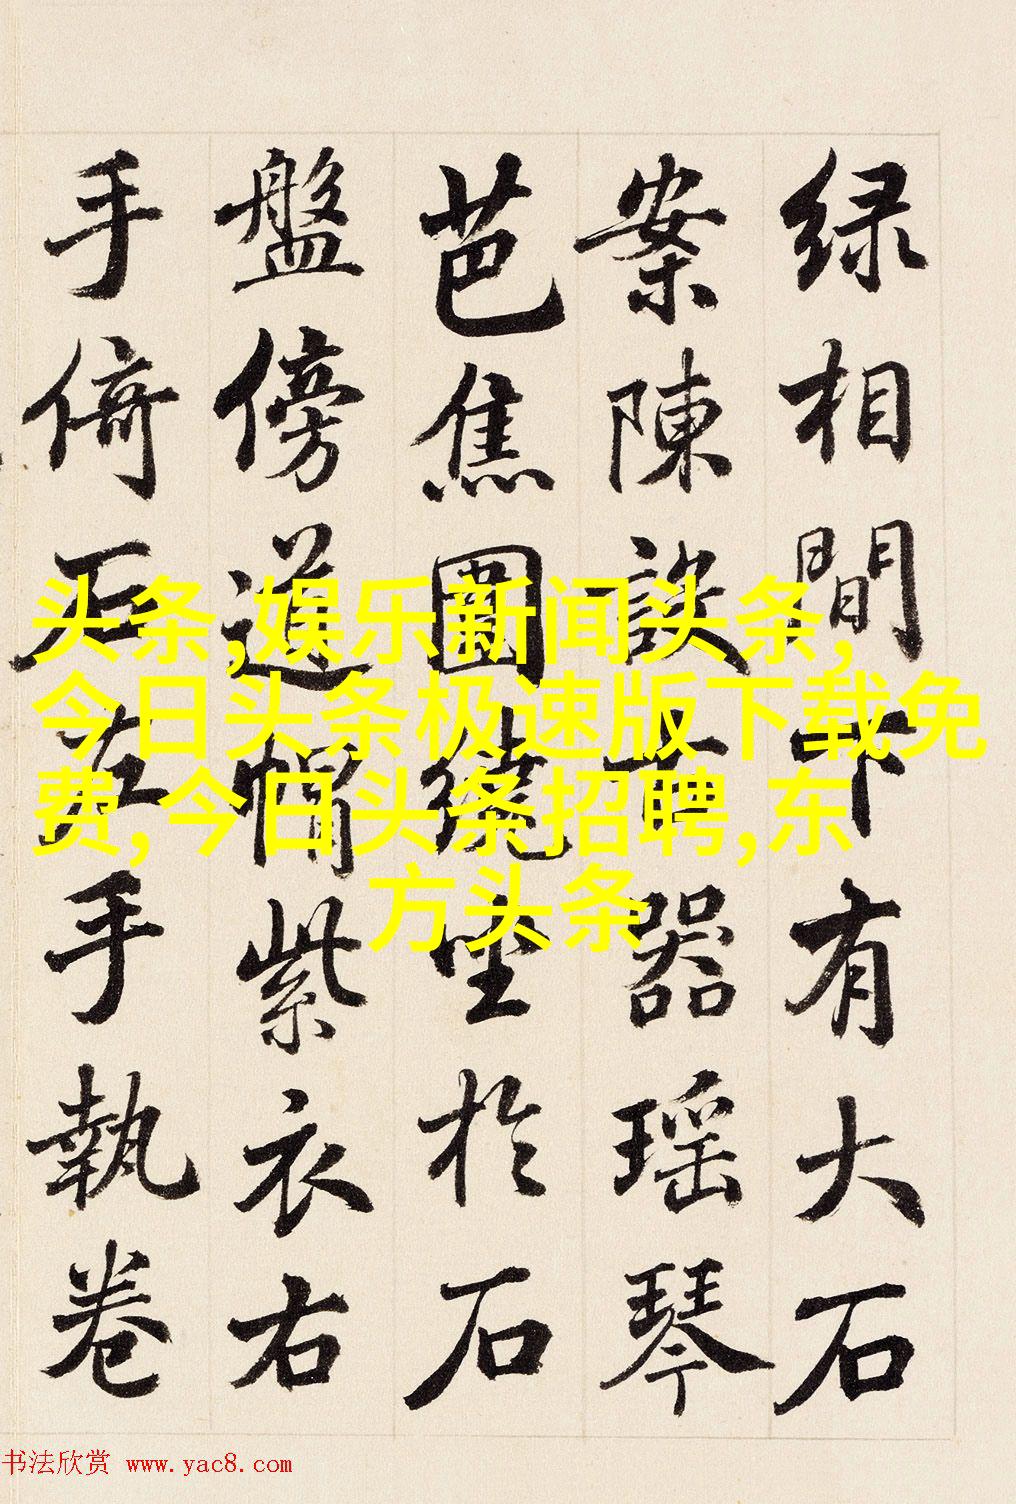 绿相間下有大石
案陳設古器瑶琴
芭焦圍繞坐於石
盤傍道帽紫衣右
手倚石左手執卷
头条,娱乐新闻头条,
今日头条极速版下载免
费,今日头条招聘,东
方头条
书法欣赏 www.yac8.com